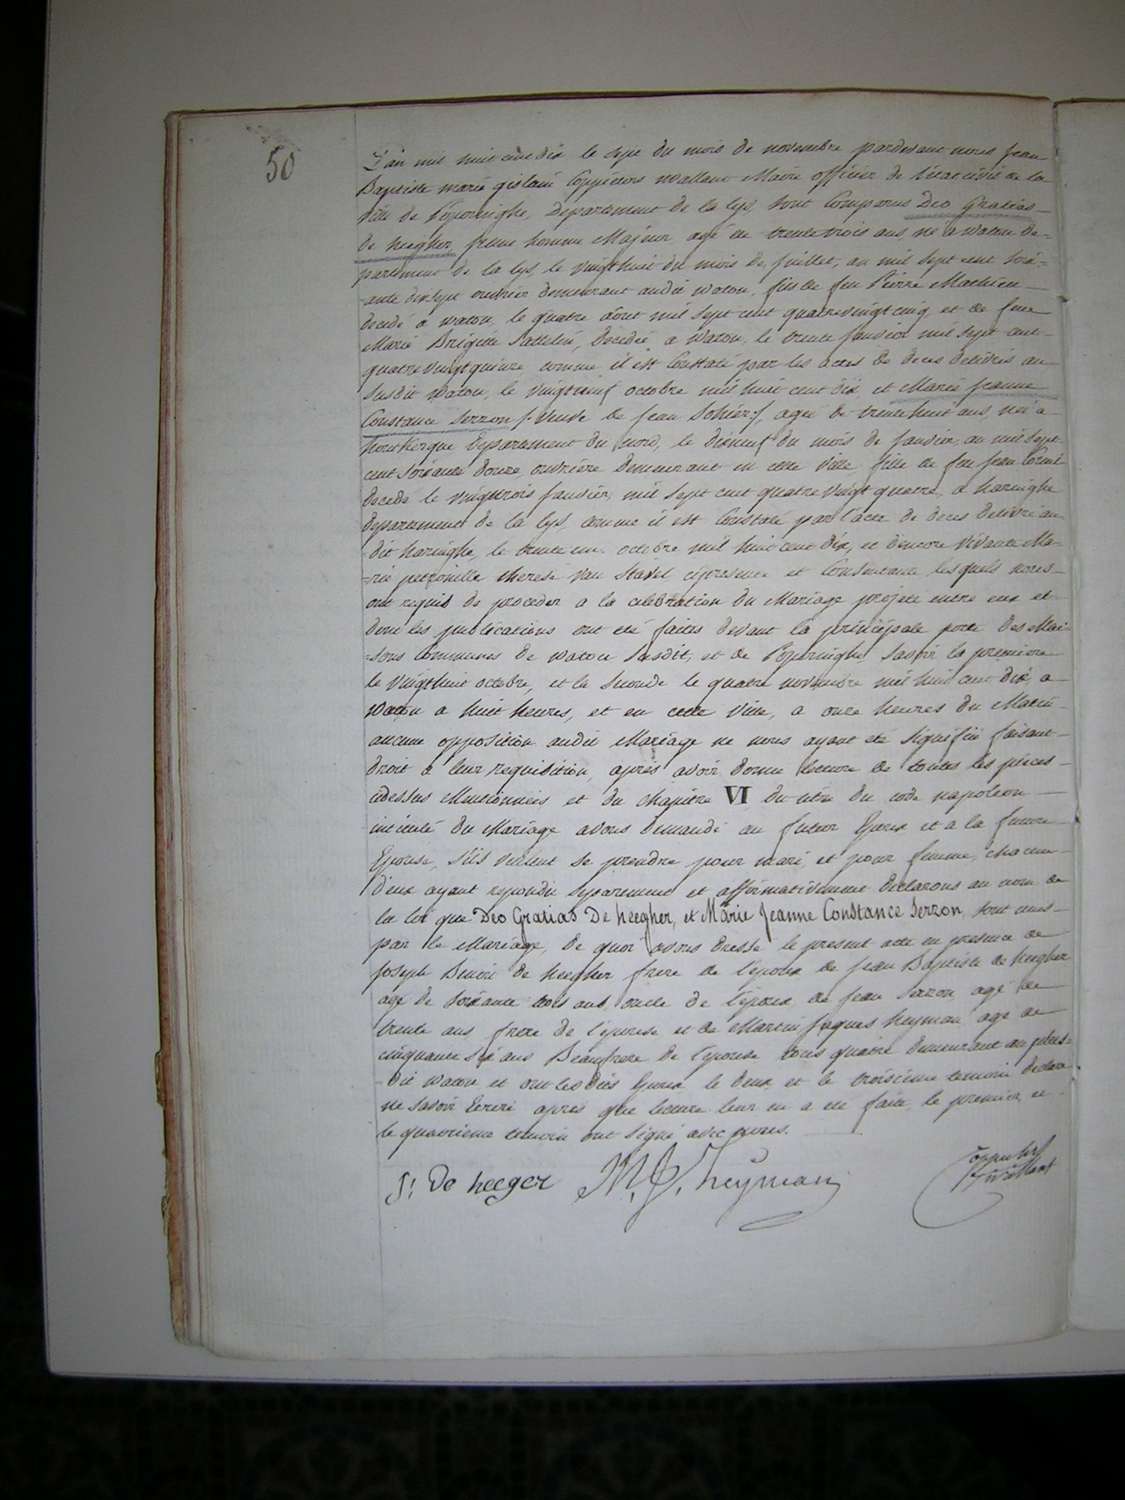 50
L'an mil huit cent dix le sept du mois de novembre pardevant nous Jean
Baptiste marie gislain Coppieters wallant Maire officier de l'état civil de la
ville de Poperinghe, departement de la Lys, sont Comparus Deo Gratias
de heegher, jeune homme Majeur agé de trente trois ans, né a watou de-
partement de la Lys, le vingthuit du mois de Juillet, an mil sept cent soix-
ante dixsept ouvrier demeurant audit watou, fils de feu Pierre Mathieu
decedé a watou, le quatre aout mil sept cent quatrevingt cinq et de feue
Marie Brigitte decedée, a Watou, le trente Janvier mil sept cent
quatrevingt quinze comme il est Constaté par les actes de deces delivrés au
susdit watou, le vingtneuf octobre mil huit cent dix, et Marie Jeanne
Constance Serzon /: veuve de Jean :/ agée de trentehuit ans, née a
houtkerque Departement du nord, le dixneuf du mois de Janvier, an mil sept
cent soixante douze ouvrière demeurant en cette ville fille de feu Jean
decedé le vingttrois Janvier, mil sept cent quatre vingt quatre, a haringhe
departement de la Lys, comme il est Constaté par l'acte de deces delivré au
dit haringhe, le trente un octobre mil huit cent dix, et d'encore vivante Ma-
rie petronille therese van Stavel cipresente et Consentante, lesquels nous
ont requis de proceder a la celebration du Mariage projeté entre eux et
dont les publications ont été faites devant la principale porte des Mai-
sons Communes de watou susdit, et de Poperinghe, savoir la première
le vingthuit octobre, et la seconde le quatre novembre mil huit cent dix, a
Watou a huit heures, et en cette ville, a onze heures du Matin
aucune opposition audit Mariage ne nous ayant été signifiée faisant
droit a leur requisition, après avoir donné lecture de toutes les pièces
cidessus Mentionnées et du chapitre VI du titre du code napoleon
intitulé du Mariage avons demandé au futur Epoux et a la future
Epouse, s'ils veulent se prendre pour mari, et pour femme, chacun
d'eux ayant repondu separement et affirmativement declarons au nom de
la loi que Deo Gratias De heegher, et Marie Jeanne Constance Serzon, sont unis
par le Mariage, de quoi avons dressé le present acte en presence de
Joseph Benoit de heegher frere de l'epoux de Jean Baptiste de heegher
agé de soixante trois ans, oncle de l'epoux, de Jean Serzon agé de
trente ans frere de l'epouse et de Martin Jaques heyman agé de
cinquante six ans Beaufrere de l'epouse tous quatre demeurant au
dit watou et ont lesdits Epoux le deux et le troisieme temoin declaré
ne savoir Ecrire après que lecture leur en a été faite, le premier et
le quatrieme temoin ont signé avec nous.
J: De heeger M. J. heyman